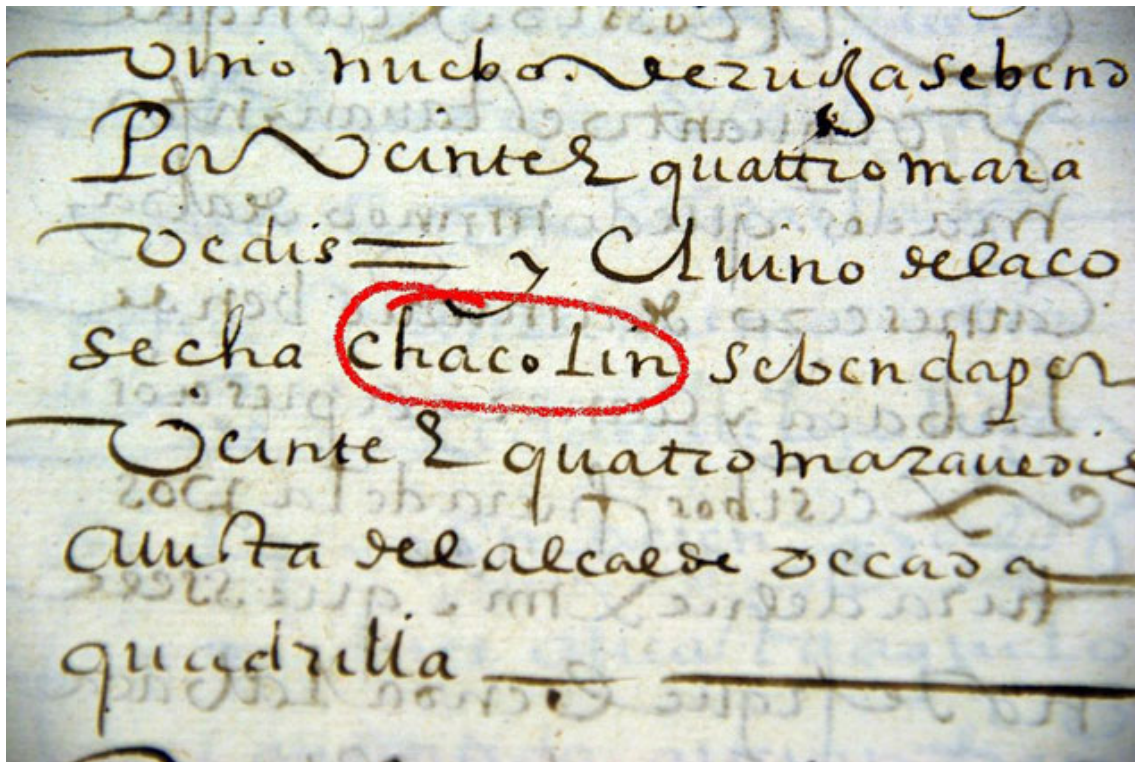 Vino nuebo. de zuiza se bend
Por Veinte & quattro mara
Vedis = y El uino de la co
secha chacolin se benda por
Veinte & quatro marauedis
a uista del alcalde de cada
quadrilla